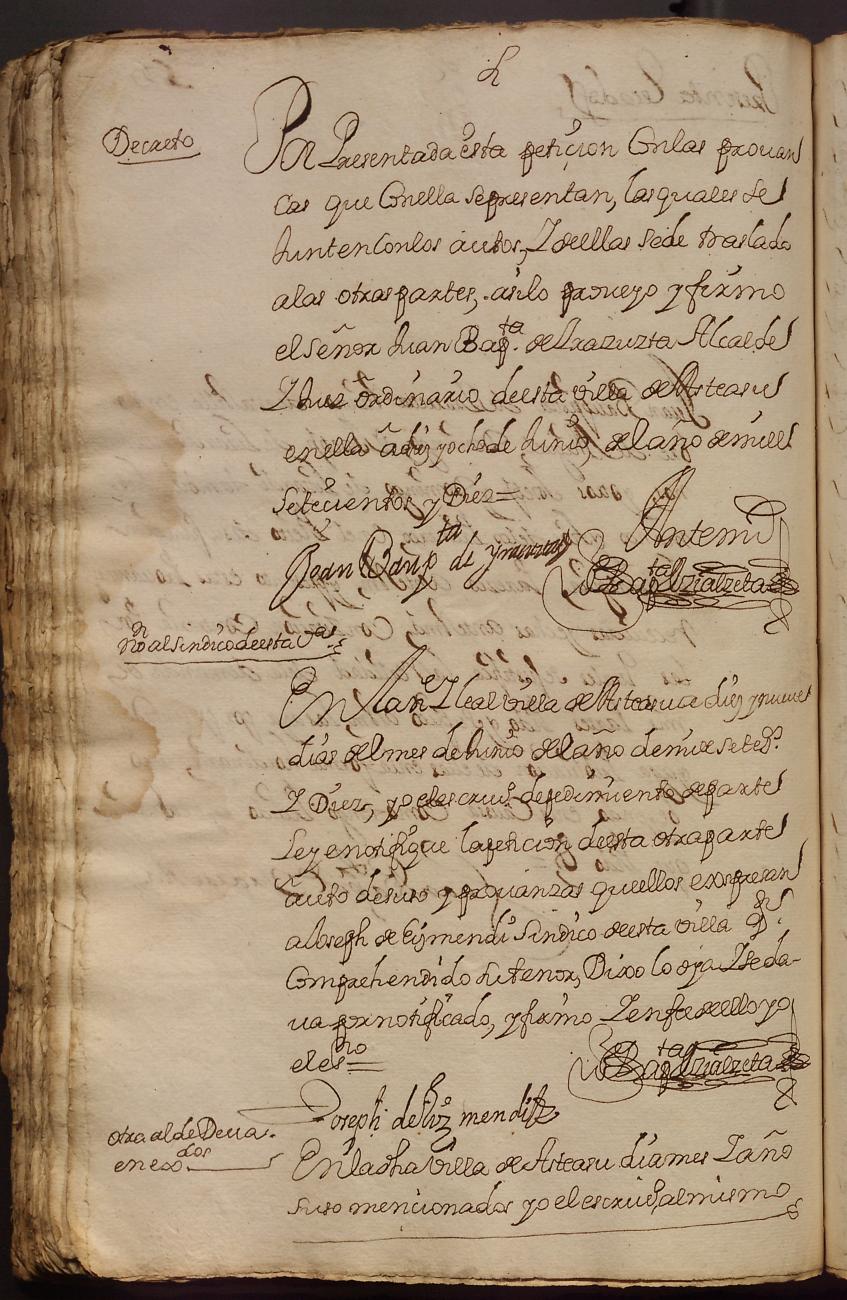 Decreto
Por Presentada esta petiçion Conlas prouan
cas que Conella sepresentan, lasquales se
Junten Conlos autos, I deellas sede traslado
alas otraspartes, asilo proueyo y firmo
el Señor Juan Bap.ta de Irazuzta Alcalde
I Juez ordinario deesta villa de Asteasu
enella a diez y ocho de Junio, del año demill
Setecientos y Diez=
Antemi
Joan Baup.ta de Yrazuzta
Bap.ta Irialzeta
non al sindico deesta Va
En la N. I leal villa de Asteasu a diez y nueue
dias del mes de Junio del año demil sete.os
I Diez, yo elescriu.o depedimiento departe
ley enotifique lapeticion deesta otraparte
auto desuso y prouanzas queellos expresan
a Joseph de sindico deesta villa
Comprehendido su tenor, Dixo lo oya I seda-
ua por notificado, y firmo I enfee deello yo
el es.no=
Bap.ta Irialzeta
Joseph de
otra al de Deua.
enexo.dos
En la dha villa de Asteasu dia mes I año
suso mencionados yo el escriu.o, al mismo